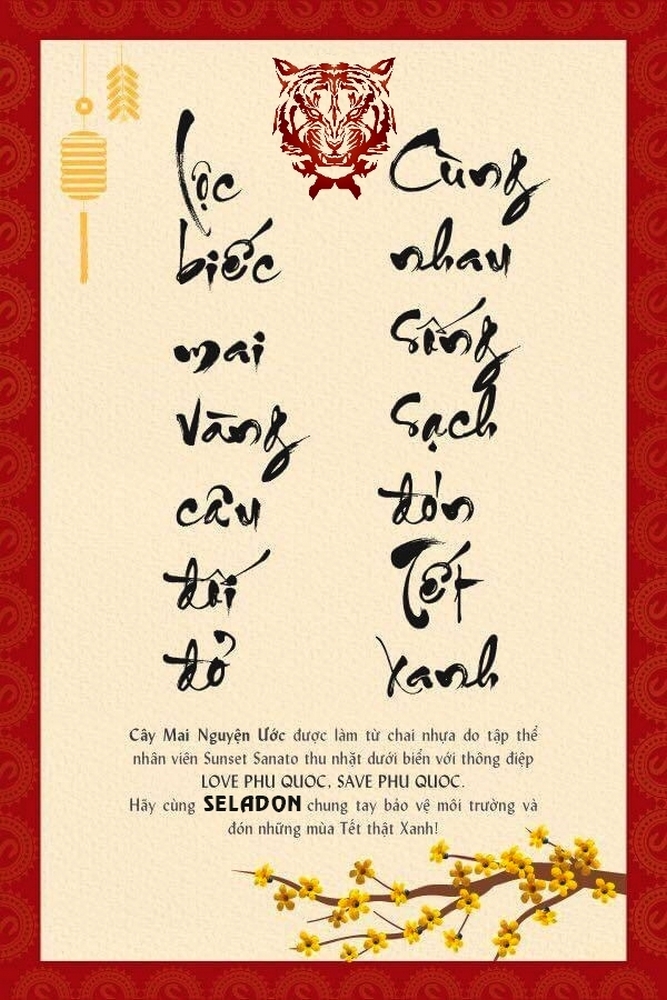 Lộc
biếc
mai
vàng
câu
đối
đỏ
Cùng
nhau
sống
sạch
đón
Tết
xanh
Cây Mai Nguyện Ước được làm từ chai nhựa do tập thể
nhân viên Sunset Sanato thu nhặt dưới biển với thông điệp
LOVE PHU QUOC, SAVE PHU QUOC.
Hãy cùng SELADON chung tay bảo vệ môi trường và
đón những mùa Tết thật Xanh!